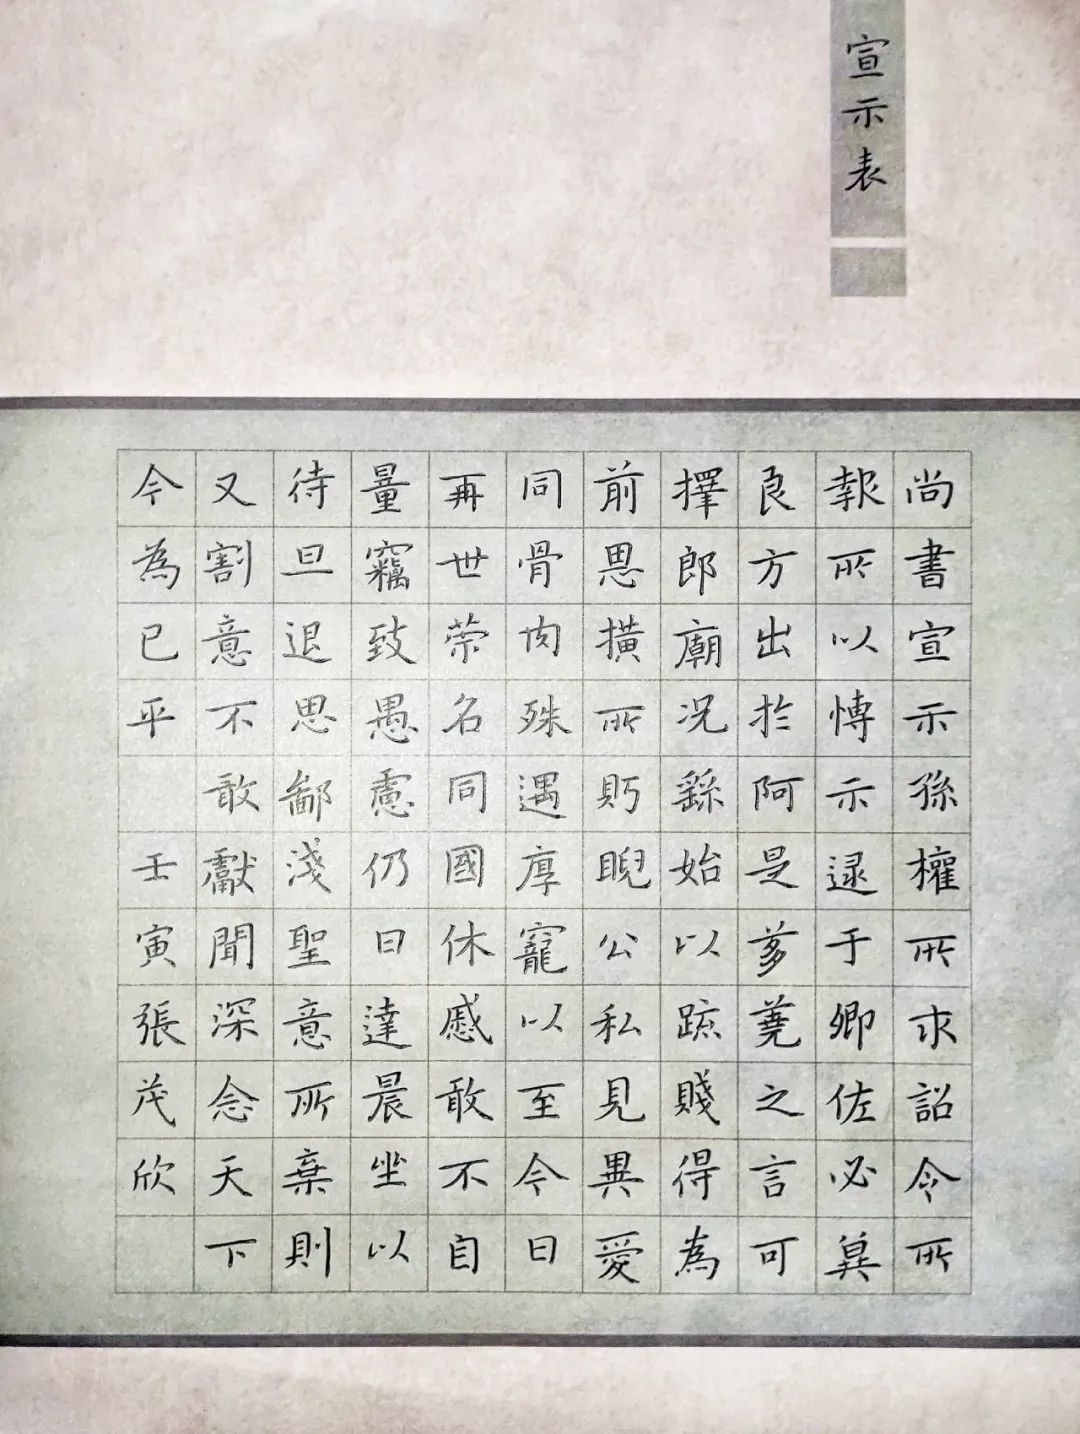 宣示表
尚書宣示孫權所求詔令所
報所以愽示逯于卿佐必兾
良方出於阿是芻蕘之言可
擇郎廟况繇始以疏賤得為
前恩横所眄睨公私見異愛
同骨肉殊遇厚寵以至今日
再世榮名同國休慼敢不自
量竊致愚慮仍日達晨坐以
待旦退思鄙淺聖意所棄則
又割意不敢獻聞深念天下
今為已平
壬寅張茂欣